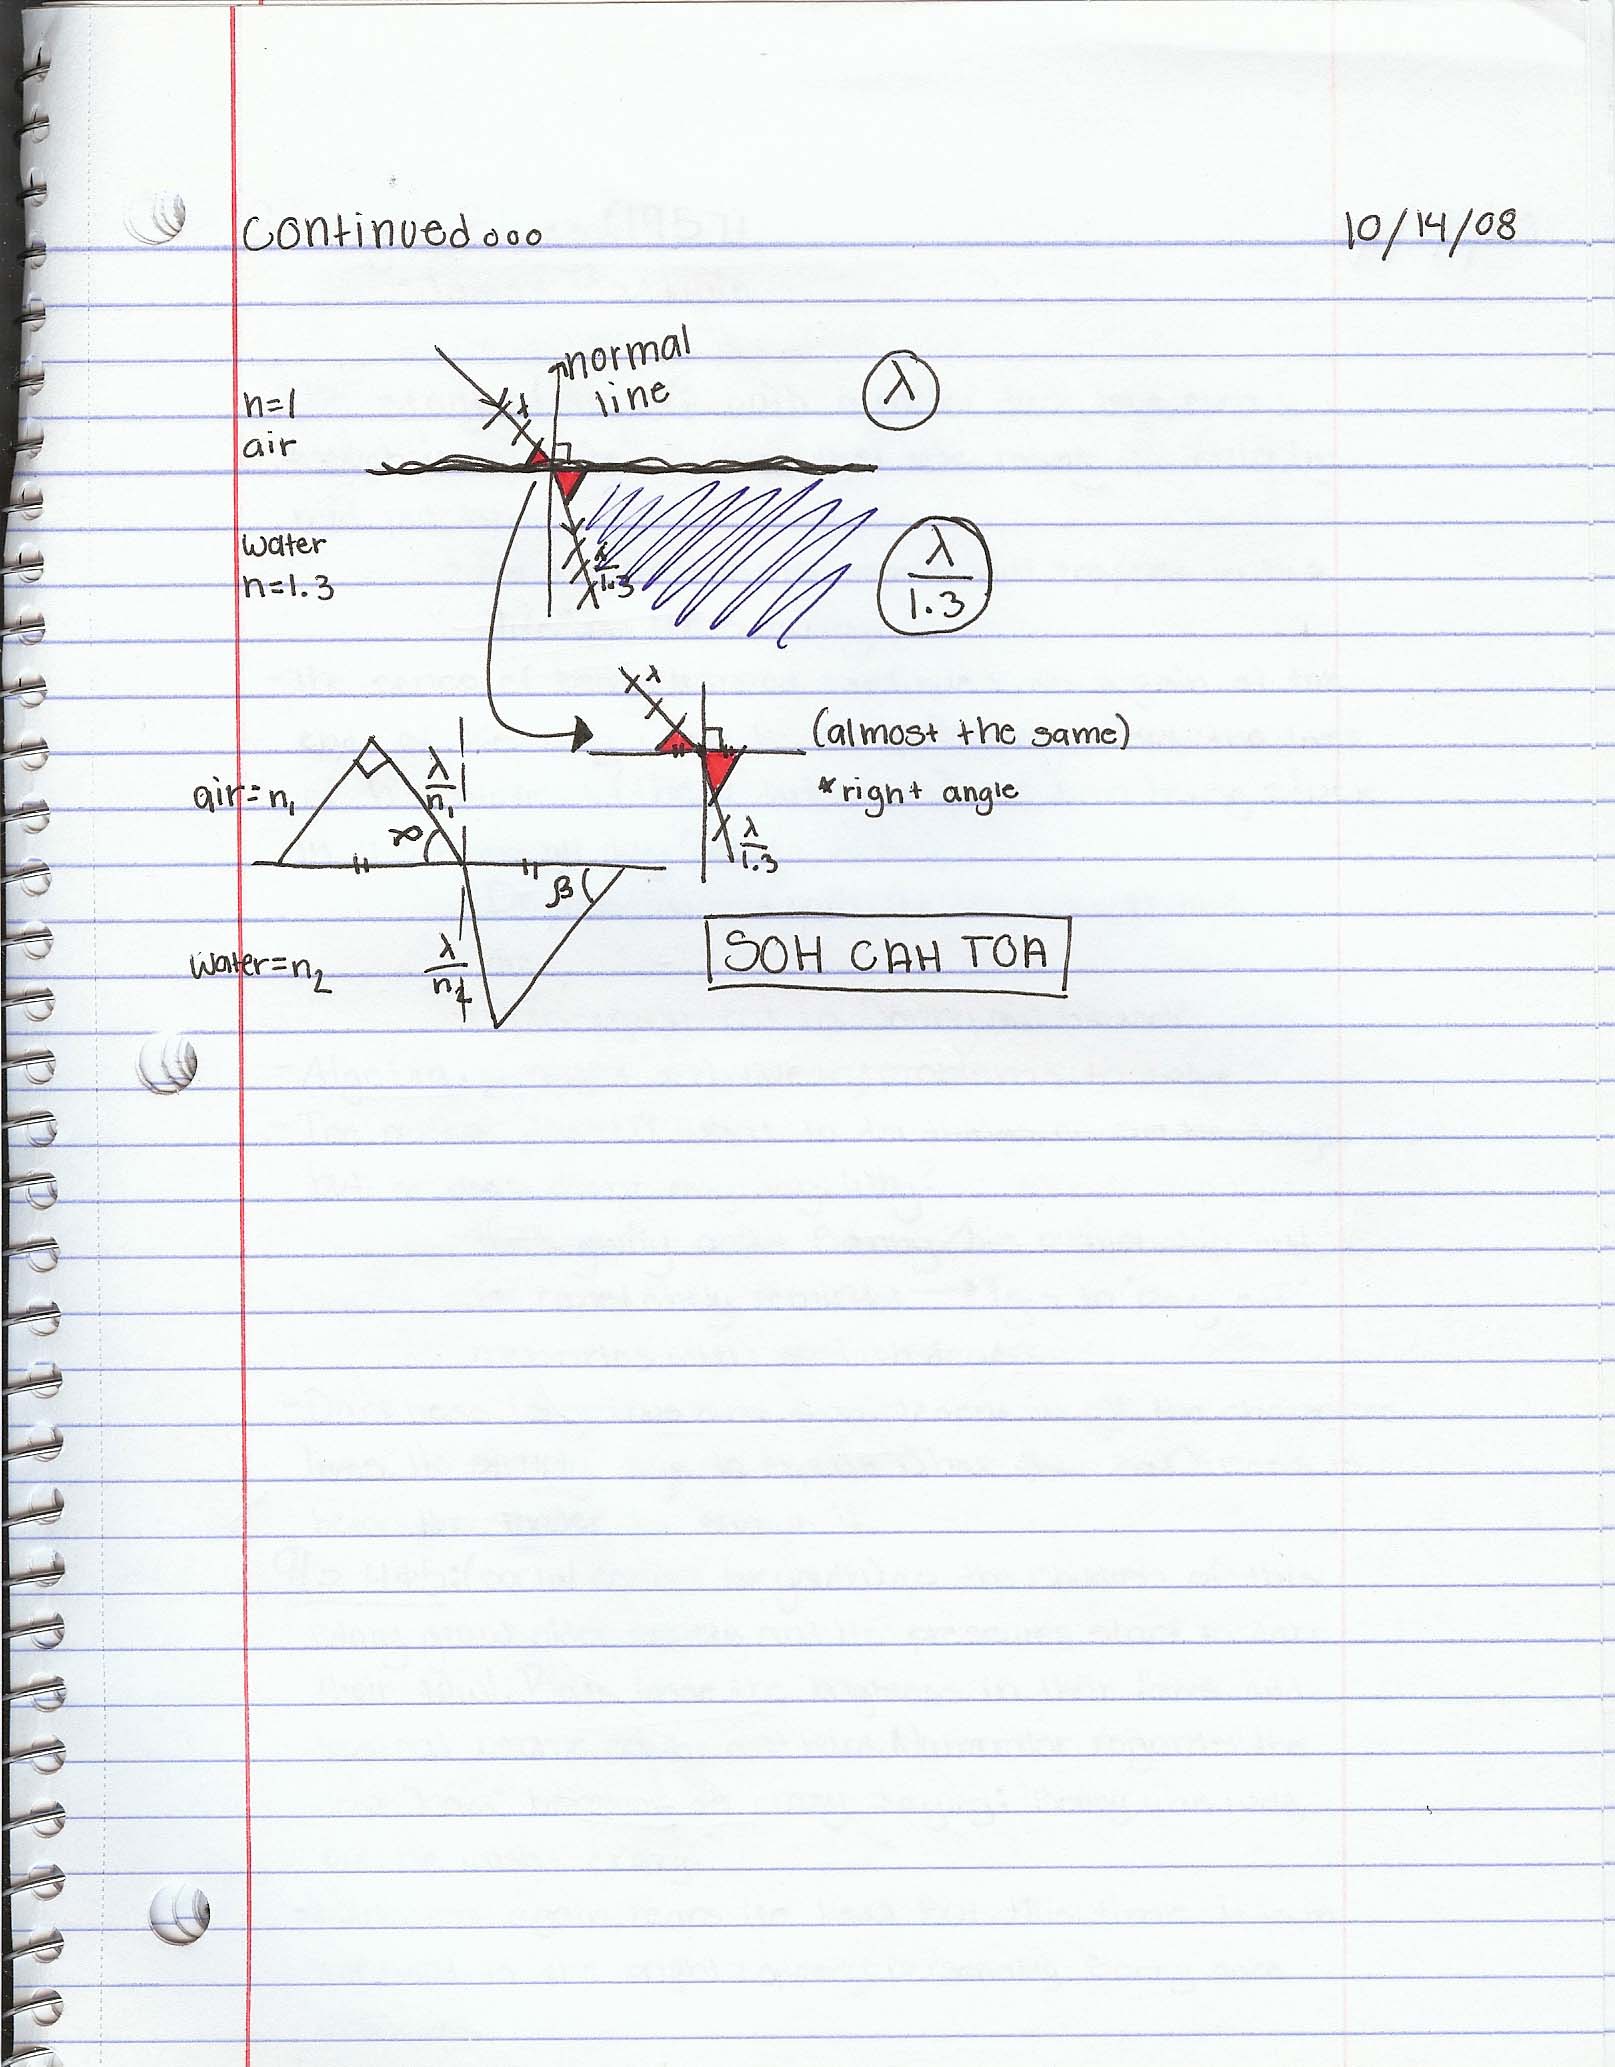 continued... 10/14/08
normal
line
λ
n=1
air
λ
water
n=1.3
λ
1.3
λ
1.3
λ
(almost the same)
*right angle
λ
1.3
air=n₁
λ
n₁
α
β
water=n₂
λ
SOH CAH TOA